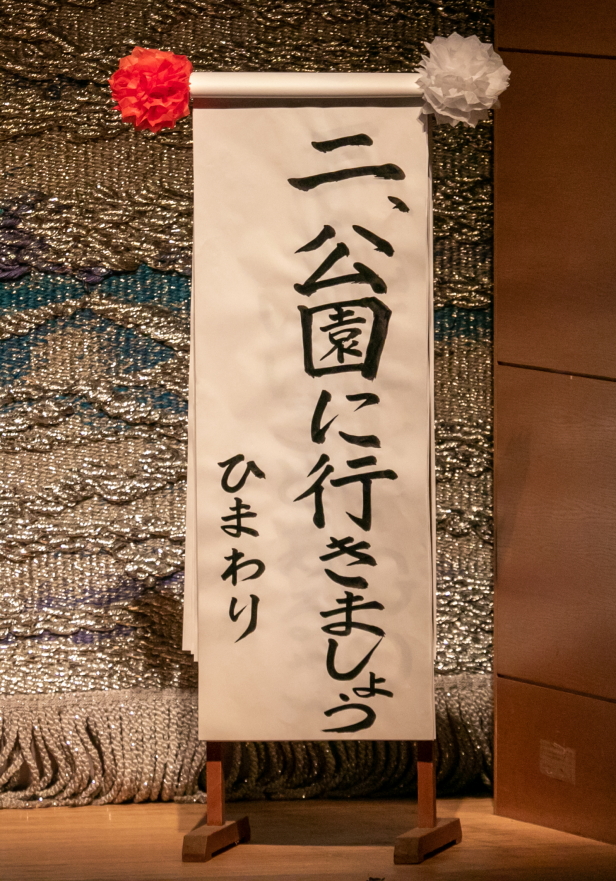 二、公園に行きましょう
ひまわり